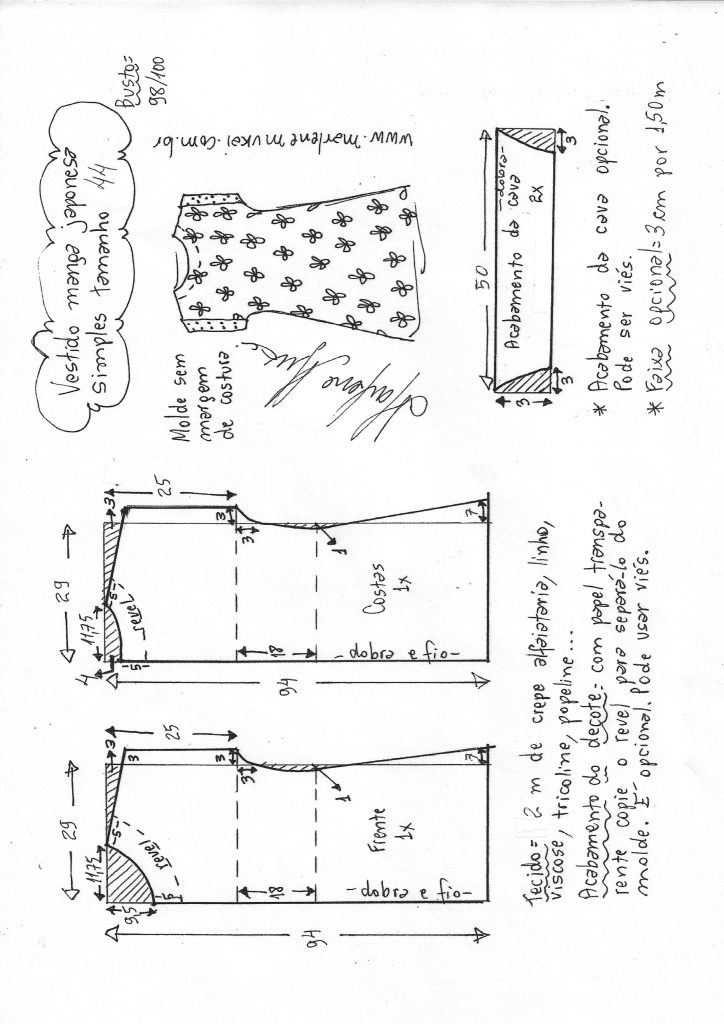 Vestido manga japonesa
simples tamanho 44
Busto=
98/100
www.marlenemukai.com.br
Molde sem
margem
de costura
Marlene Mukai
50
-dobra-
Acabamento da cava
2X
3
3
3
* Acabamento da cava opcional.
Pode ser viés.
* Faixa opcional= 3 cm por 1,50m
29
11,75
3
25
9,5
5
revel
5
3
3
3
18
1
7
Frente
1x
-dobra e fio-
94
29
11,75
3
25
4
5
revel
5
3
3
18
1
7
Costas
1x
-dobra e fio-
94
Tecido= 2 m de crepe alfaiataria, linho,
viscose, tricoline, popeline...
Acabamento do decote= com papel transpa-
rente copie o revel para separá-lo do
molde. É opcional. Pode usar viés.